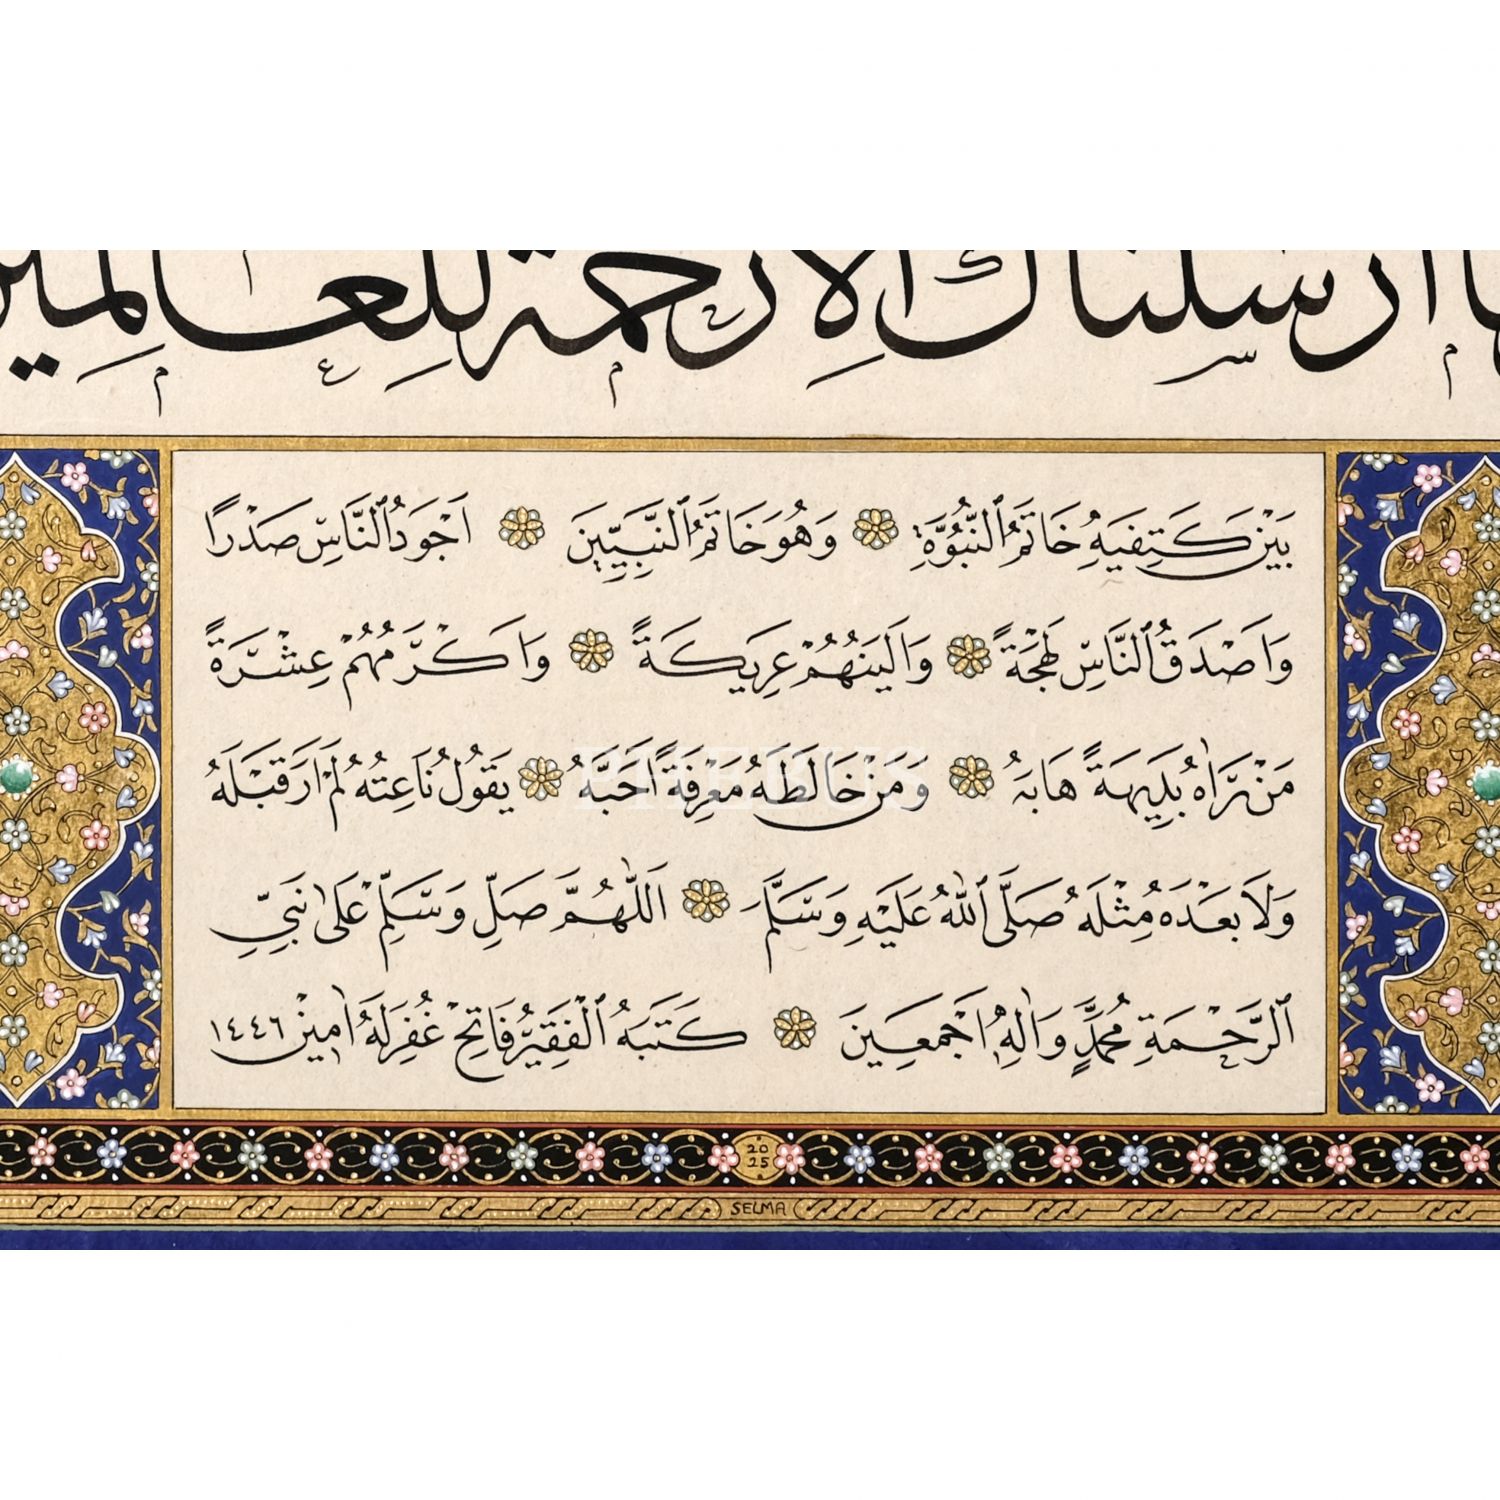 وما ارسلناك الا رحمة للعالمين
بَيْنَ كَتِفَيْهِ خَاتَمُ النُّبُوَّةِ وَهُوَ خَاتَمُ النَّبِيّٖينَ اَجْوَدُ النَّاسِ صَدْرًا
وَاَصْدَقُ النَّاسِ لَهْجَةً وَاَلْيَنُهُمْ عَرِيكَةً وَاَكْرَمُهُمْ عِشْرَةً
مَنْ رَاٰهُ بَدِيهَةً هَابَهُ وَمَنْ خَالَطَهُ مَعْرِفَةً اَحَبَّهُ يَقُولُ نَاعِتُهُ لَمْ اَرَ قَبْلَهُ
PHEBUS
وَلَا بَعْدَهُ مِثْلَهُ صَلَّى اللهُ عَلَيْهِ وَسَلَّمَ اَللّٰهُمَّ صَلِّ وَسَلِّمْ عَلٰى نَبِيِّ
الرَّحْمَةِ مُحَمَّدٍ وَاٰلِهٖ اَجْمَعِينَ كَتَبَهُ الْفَقِيرُ فَاتِحْ غُفِرَ لَهُ اٰمِينْ ١٤٤٦
20
25
SELMA